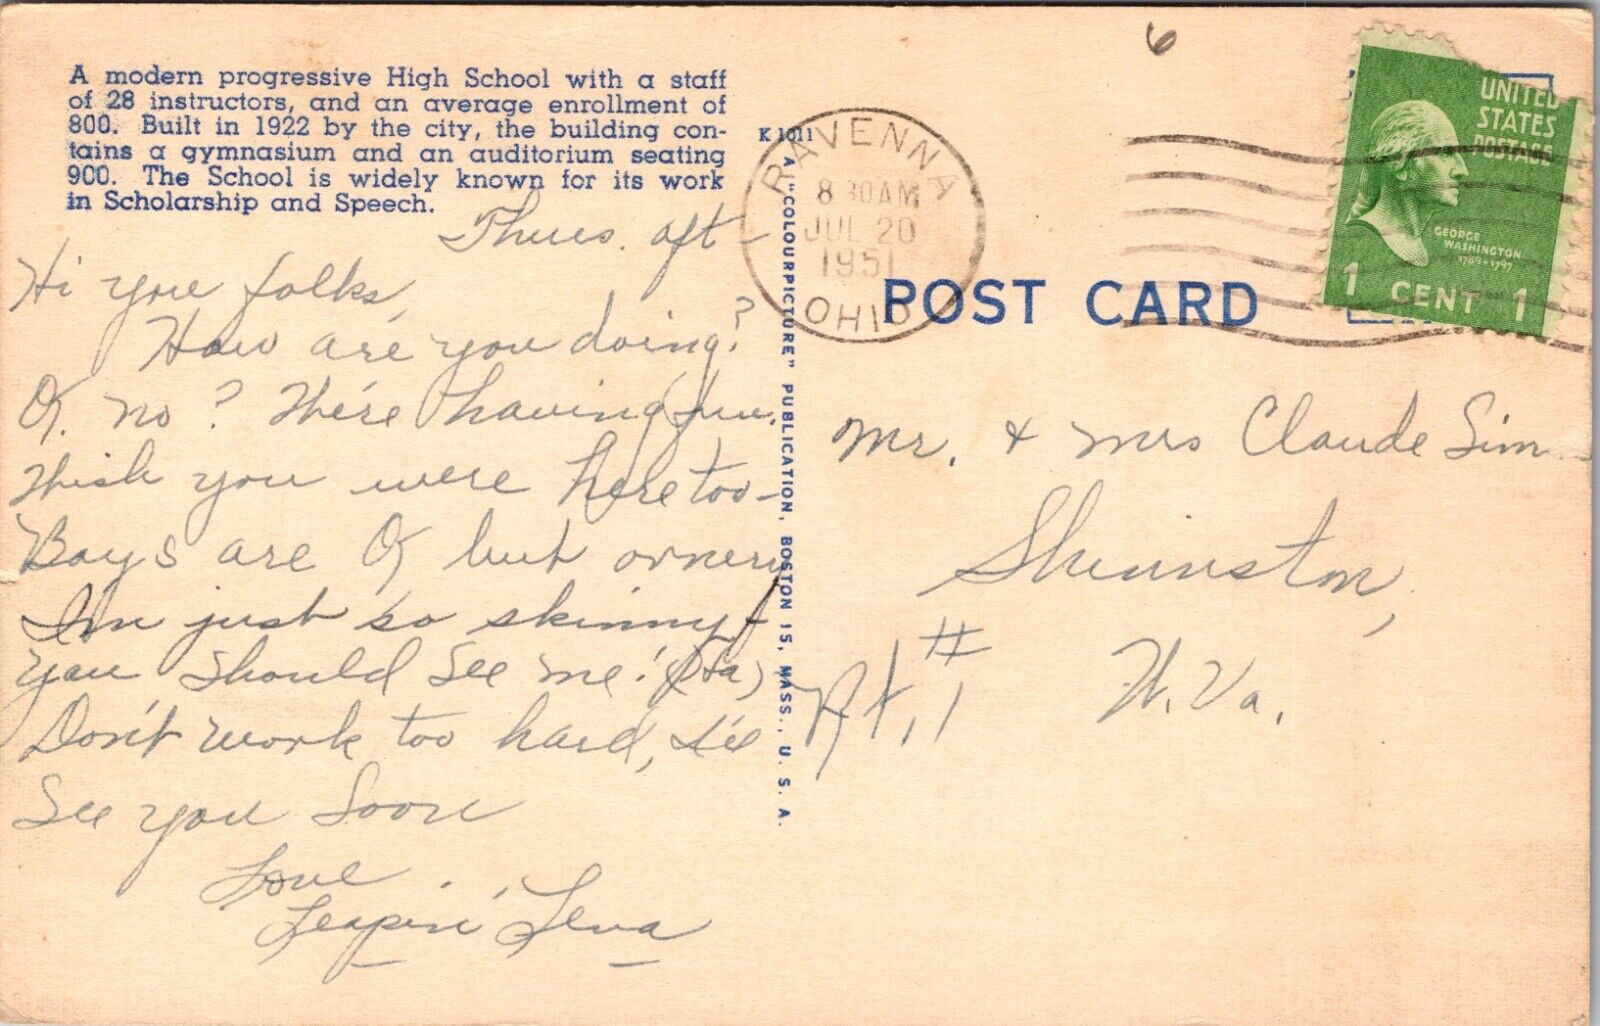 A modern progressive High School with a staff
of 28 instructors, and an average enrollment of
800. Built in 1922 by the city, the building con-
tains a gymnasium and an auditorium seating
900. The School is widely known for its work
in Scholarship and Speech.
Thurs. aft-
Hi you folks,
How are you doing?
O.K. no? We're having fun.
Wish you were here too-
Boys are OK but ornery
I'm just so skinny-
you should see me! (Ha)
Don't work too hard, I'll
See you Soon
Love
Leapin' Lena
K 1011
A "COLOURPICTURE" PUBLICATION, BOSTON 15, MASS., U. S. A.
6
RAVENNA
8 30 AM
JUL 20
1951
OHIO
UNITED
STATES
POSTAGE
GEORGE
WASHINGTON
1789-1797
1 CENT 1
POST CARD
Mr. & Mrs Claude Sim
Shinnston,
Rt. #1 W. Va.